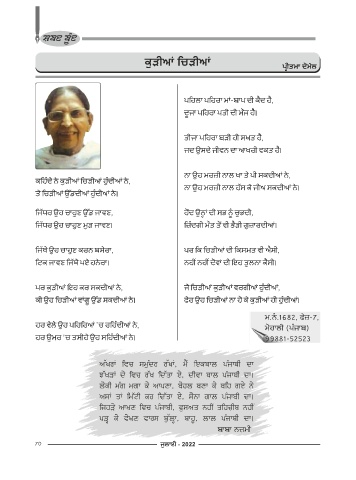 ਸ਼ਬਦ ਬੂੰਦ
ਕੁੜੀਆਂ ਚਿੜੀਆਂ
ਪ੍ਰੀਤਮਾ ਦੋਮੇਲ
ਕਹਿੰਦੇ ਨੇ ਕੁੜੀਆਂ ਚਿੜੀਆਂ ਹੁੰਦੀਆਂ ਨੇ,
ਤੇ ਚਿੜੀਆਂ ਉੱਡਦੀਆਂ ਹੁੰਦੀਆਂ ਨੇ।
ਜਿੱਧਰ ਉਹ ਚਾਹੁਣ ਉੱਡ ਜਾਵਣ,
ਜਿੱਧਰ ਉਹ ਚਾਹੁਣ ਮੁੜ ਜਾਵਣ।
ਜਿੱਥੇ ਉਹ ਚਾਹੁਣ ਕਰਨ ਬਸੇਰਾ,
ਟਿਕ ਜਾਵਣ ਜਿੱਥੇ ਪਏ ਹਨੇਰਾ।
ਪਰ ਕੁੜੀਆਂ ਇਹ ਕਰ ਸਕਦੀਆਂ ਨੇ,
ਕੀ ਉਹ ਚਿੜੀਆਂ ਵਾਂਗੂ ਉੱਡ ਸਕਦੀਆਂ ਨੇ।
ਹਰ ਵੇਲੇ ਉਹ ਪਹਿਰਿਆਂ 'ਚ ਰਹਿੰਦੀਆਂ ਨੇ,
ਹਰ ਉਮਰ 'ਚ ਤਸੀਹੇ ਉਹ ਸਹਿੰਦੀਆਂ ਨੇ।
ਪਹਿਲਾ ਪਹਿਰਾ ਮਾਂ-ਬਾਪ ਦੀ ਕੈਦ ਹੈ,
ਦੂਜਾ ਪਹਿਰਾ ਪਤੀ ਦੀ ਮੌਜ ਹੈ।
ਤੀਜਾ ਪਹਿਰਾ ਬੜੀ ਹੀ ਸਖ਼ਤ ਹੈ,
ਜਦ ਉਸਦੇ ਜੀਵਨ ਦਾ ਆਖਰੀ ਵਕਤ ਹੈ।
ਨਾ ਉਹ ਮਰਜੀ ਨਾਲ ਖਾ ਤੇ ਪੀ ਸਕਦੀਆਂ ਨੇ,
ਨਾ ਉਹ ਮਰਜੀ ਨਾਲ ਹੱਸ ਕੇ ਜੀਅ ਸਕਦੀਆਂ ਨੇ।
ਹੋਂਦ ਉਨ੍ਹਾਂ ਦੀ ਸਭ ਨੂੰ ਚੁਭਦੀ,
ਜ਼ਿੰਦਗੀ ਮੌਤ ਤੋਂ ਵੀ ਭੈੜੀ ਗੁਜ਼ਾਰਦੀਆਂ।
ਪਰ ਕਿ ਚਿੜੀਆਂ ਦੀ ਕਿਸਮਤ ਵੀ ਐਸੀ,
ਨਹੀਂ ਨਹੀਂ ਦੋਵਾਂ ਦੀ ਇਹ ਤੁਲਨਾ ਕੈਸੀ।
ਜੇ ਚਿੜੀਆਂ ਕੁੜੀਆਂ ਵਰਗੀਆਂ ਹੁੰਦੀਆਂ,
ਫੇਰ ਉਹ ਚਿੜੀਆਂ ਨਾ ਹੋ ਕੇ ਕੁੜੀਆਂ ਹੀ ਹੁੰਦੀਆਂ।
ਮ.ਨੰ.1682, ਫੇਜ਼-7,
ਮੋਹਾਲੀ (ਪੰਜਾਬ)
99881-52523
ਅੱਖਰਾਂ ਵਿਚ ਸਮੁੰਦਰ ਰੱਖਾਂ, ਮੈਂ ਇਕਬਾਲ ਪੰਜਾਬੀ ਦਾ
ਝੱਖੜਾਂ ਦੇ ਵਿਚ ਰੱਖ ਦਿੱਤਾ ਏ, ਦੀਵਾ ਬਾਲ ਪੰਜਾਬੀ ਦਾ।
ਲੋਕੀ ਮੰਗ ਮੰਗਾ ਕੇ ਆਪਣਾ, ਬੋਹਲ ਬਣਾ ਕੇ ਬਹਿ ਗਏ ਨੇ
ਅਸਾਂ ਤਾਂ ਮਿੱਟੀ ਕਰ ਦਿੱਤਾ ਏ, ਸੋਨਾ ਗਾਲ ਪੰਜਾਬੀ ਦਾ।
ਜਿਹੜੇ ਆਖਣ ਵਿਚ ਪੰਜਾਬੀ, ਵੁਸਅਤ ਨਹੀਂ ਤਹਿਜ਼ੀਬ ਨਹੀਂ
ਪੜ੍ਹ ਕੇ ਵੇਖਣ ਵਾਰਸ ਬੁੱਲ੍ਹਾ, ਬਾਹੂ, ਲਾਲ ਪੰਜਾਬੀ ਦਾ।
ਬਾਬਾ ਨਜ਼ਮੀ
ਜੁਲਾਈ - 2022